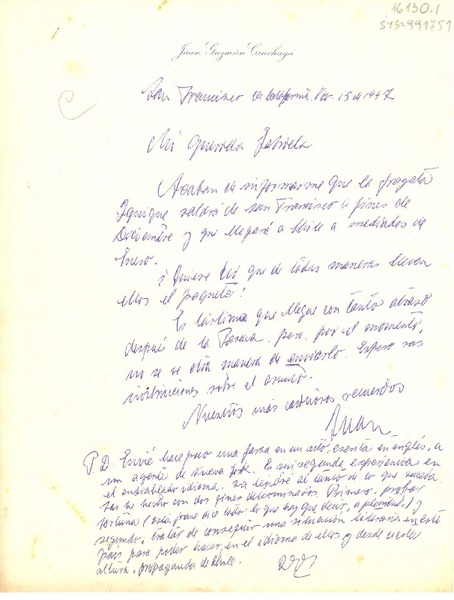 16130.1
sys=991751
Juan Guzmán Cruchaga
San Francisco de California, Nov. 15 de 1947.
Mi querida Gabriela
Acaban de informarme que la fragata
Iquique saldrá de San Francisco a fines de
Diciembre y que llegará a Chile a mediados de
Enero.
¿Quiere Ud que de todas maneras lleven
ellos el paquete?
Es lástima que llegue con tanto atraso
después de la Pascua, pero, por el momento,
no se de otra manera de enviarlo. Espero sus
instrucciones sobre el asunto.
Nuestros más cariñosos recuerdos
Juan
P.D. Envié hace poco una farsa en un acto, escrita en inglés, a
un agente de Nueva York. Es mi segunda experiencia en
el endiablado idioma. La tendré al tanto de lo que suceda
he hecho con dos fines determinados. Primero, probar
fortuna (esta frase dice todo lo que hay que decir, ) y
segundo, tratar de conseguir una situación literaria en este
país para poder hacer, en el idioma de ellos y desde cierta
altura, propaganda de Chile.